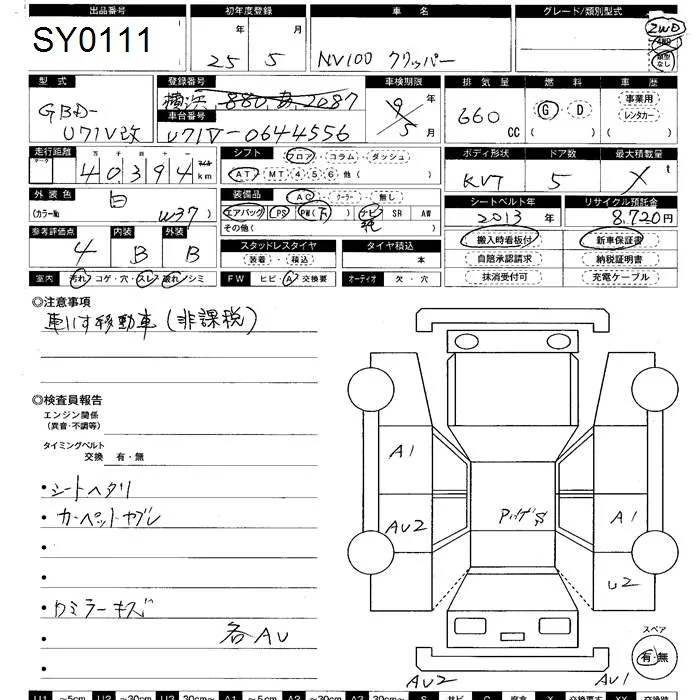 出品番号 初年度登録 車名 グレード/類別型式
SY0111 25年 5月 NV100 クリッパー 2WD 4WD 類別なし
型式 登録番号 車検期限 排気量 燃料 車歴
GBD-U71V改 横浜 880 あ 2087 9年 5月 660cc G・D ( ) 事業用 レンタカー ( )
車台番号
U71V-0644556
走行距離 シフト フロア・コラム・ダッシュ ボディ形状 ドア数 最大積載量
十万千百十 マイル
40394km AT・MT・4・5・6 他( ) 5 t
外装色 装備品 AC・クーラー・無し シートベルト年 リサイクル預託金
白 エアバッグ PS PW(下) ナビ SR AW 2013年 8,720円
(カラーNo. W37) その他( )
参考評価点 内装 外装 スタッドレスタイヤ タイヤ積込 搬入時看板付 新車保証書
4 B B 装着・積込 本 自賠承認請求 納税証明書
室内 汚れ・コゲ・穴・スレ・破れ・シミ FW ヒビ・A・交換要 オーディオ 欠・穴 抹消受付可 充電ケーブル
◎注意事項
車いす移動車(非課税)
◎検査員報告
エンジン関係
(異音・不調等)
タイミングベルト
交換 有・無
・シートヘタリ
・カーペットヤブレ
・ロミラーキズ
各AU
A1
AU2
A1
U2
スペア
有・無
AU2 AU1
U1 ～5cm U2 ～30cm U3 30cm～ A1 ～5cm A2 ～30cm A3 30cm～ S サビ C 腐食 X 交換要す XX 交換跡